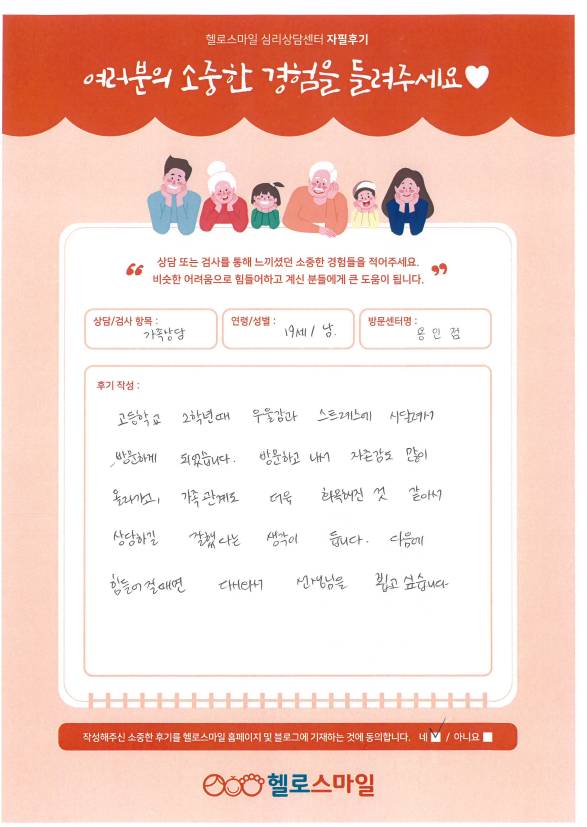 헬로스마일 심리상담센터 자필후기
여러분의 소중한 경험을 들려주세요
상담 또는 검사를 통해 느끼셨던 소중한 경험들을 적어주세요.
비슷한 어려움으로 힘들어하고 계신 분들에게 큰 도움이 됩니다.
상담/검사 항목 : 가족상담
연령/성별 : 19세 / 남.
방문센터명 : 용인점
후기 작성 :
고등학교 2학년때 우울감과 스트레스에 시달려서
방문하게 되었습니다. 방문하고 나서 자존감도 많이
올라가고, 가족관계도 더욱 화목해진 것 같아서
상담하길 잘했다는 생각이 듭니다. 다음에
힘들어질때면 다시와서 선생님을 뵙고 싶습니다
작성해주신 소중한 후기를 헬로스마일 홈페이지 및 블로그에 기재하는 것에 동의합니다. 네 / 아니요
헬로스마일